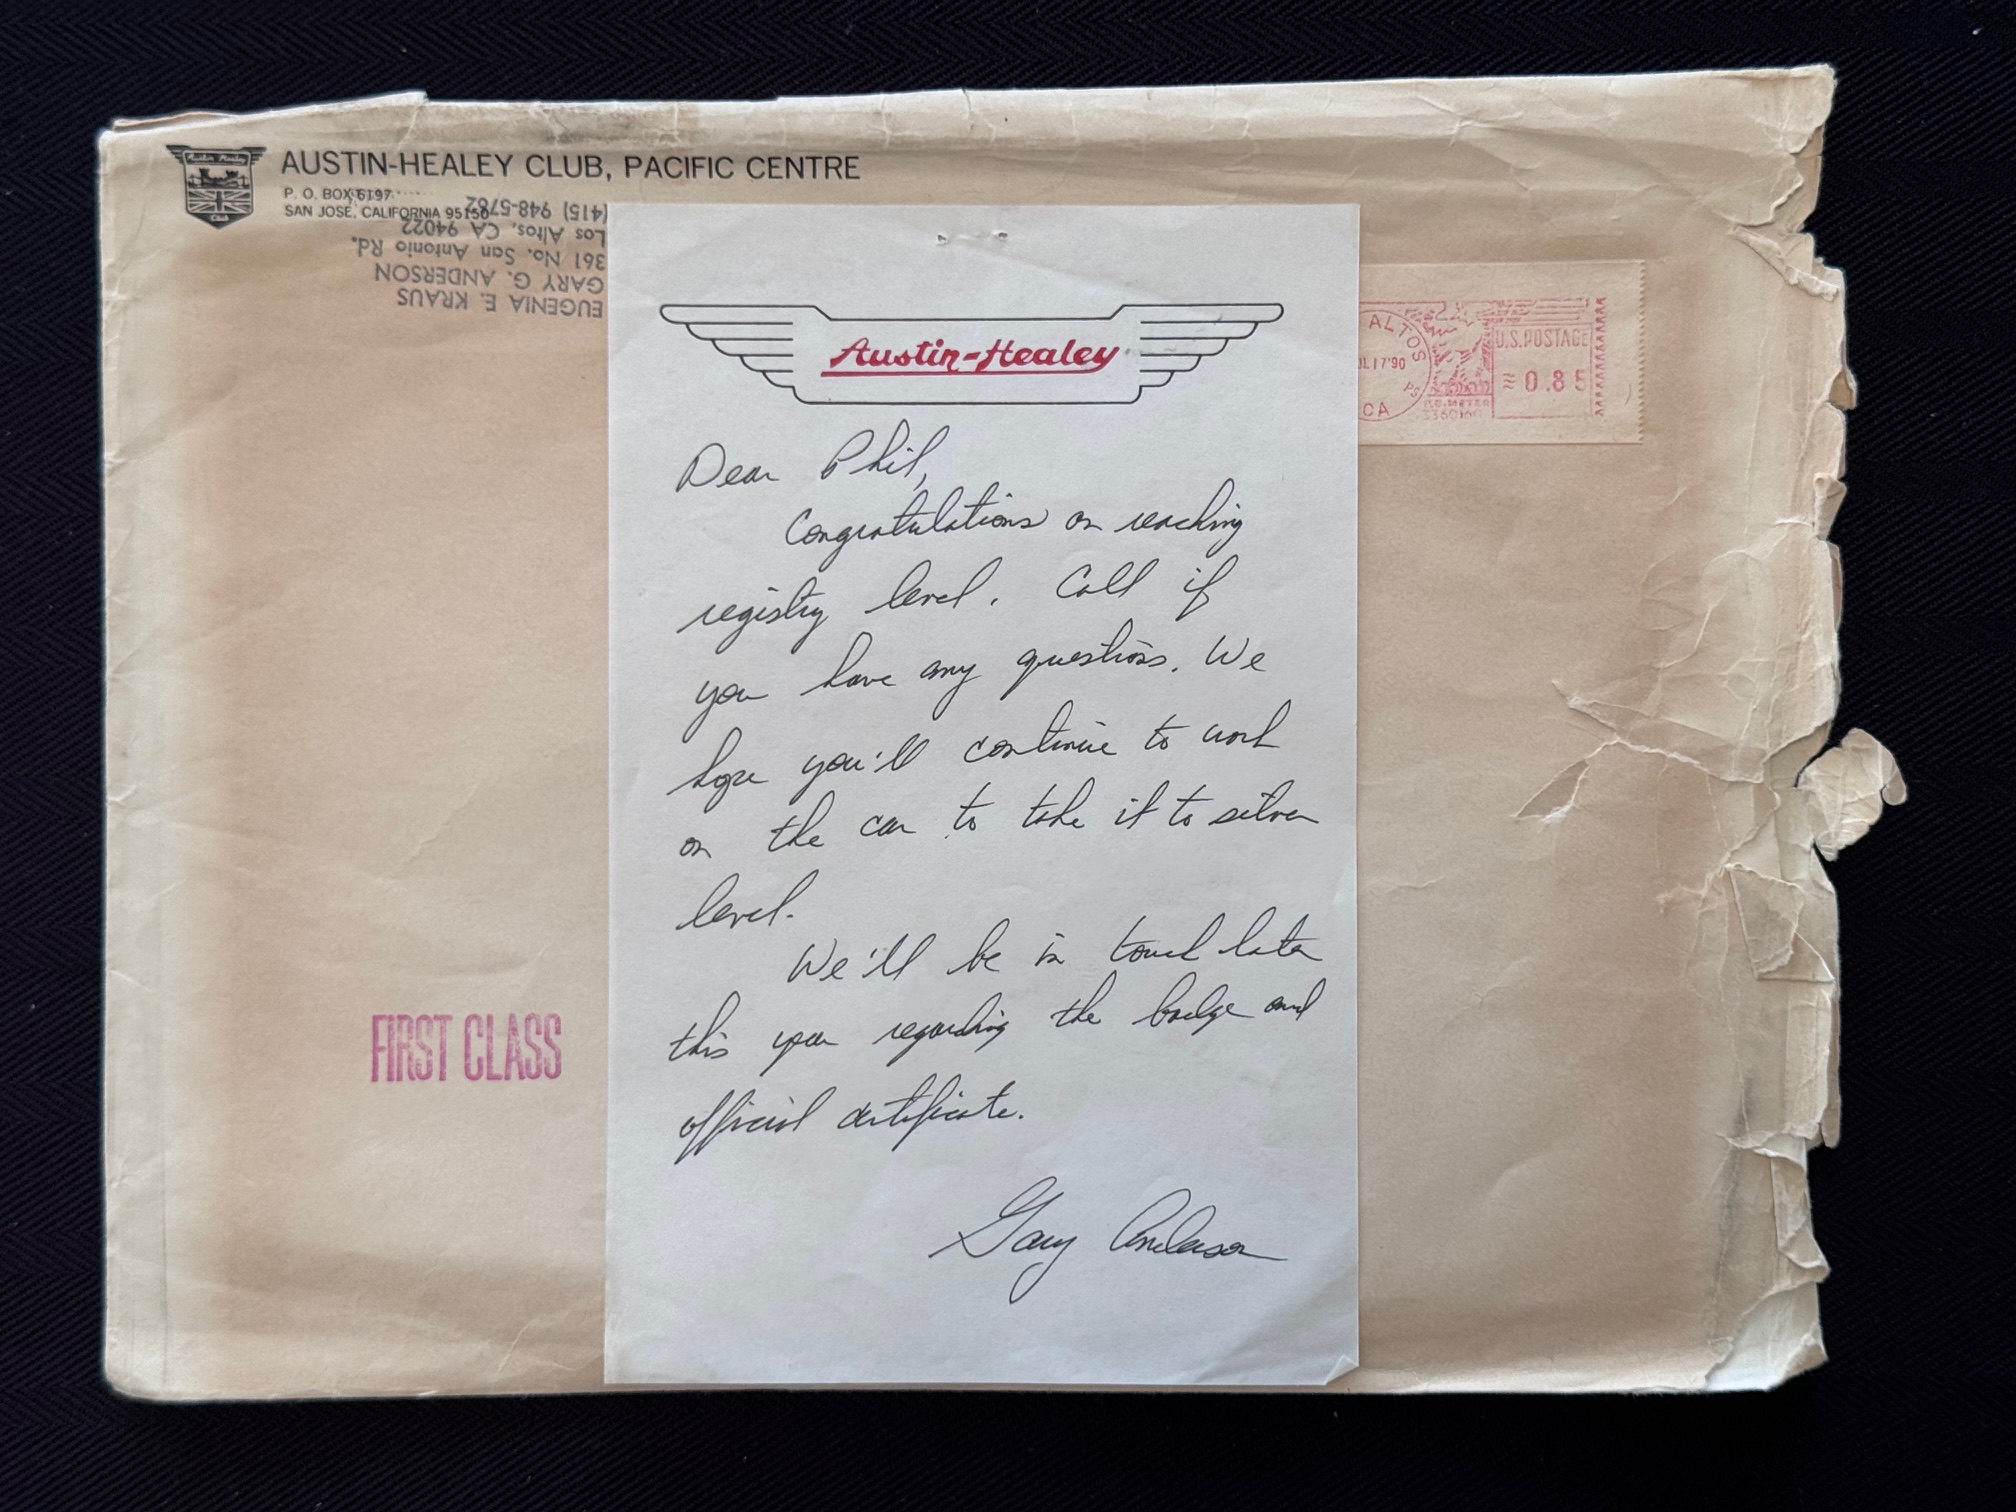 Austin Healey
Club
AUSTIN-HEALEY CLUB, PACIFIC CENTRE
P. O. BOX 6197
SAN JOSE, CALIFORNIA 95150
EUGENIA E. KRAUS
GARY G. ANDERSON
361 No. San Antonio Rd.
Los Altos, CA 94022
(415) 948-5762
ALTOS
17'90
CA
U.S. POSTAGE
0.85
P.B. METER
FIRST CLASS
Austin-Healey
Dear Phil,
Congratulations on reaching
registry level. Call if
you have any questions. We
hope you'll continue to work
on the car to take it to silver
level.
We'll be in touch later
this year regarding the badge and
official certificate.
Gary Anderson